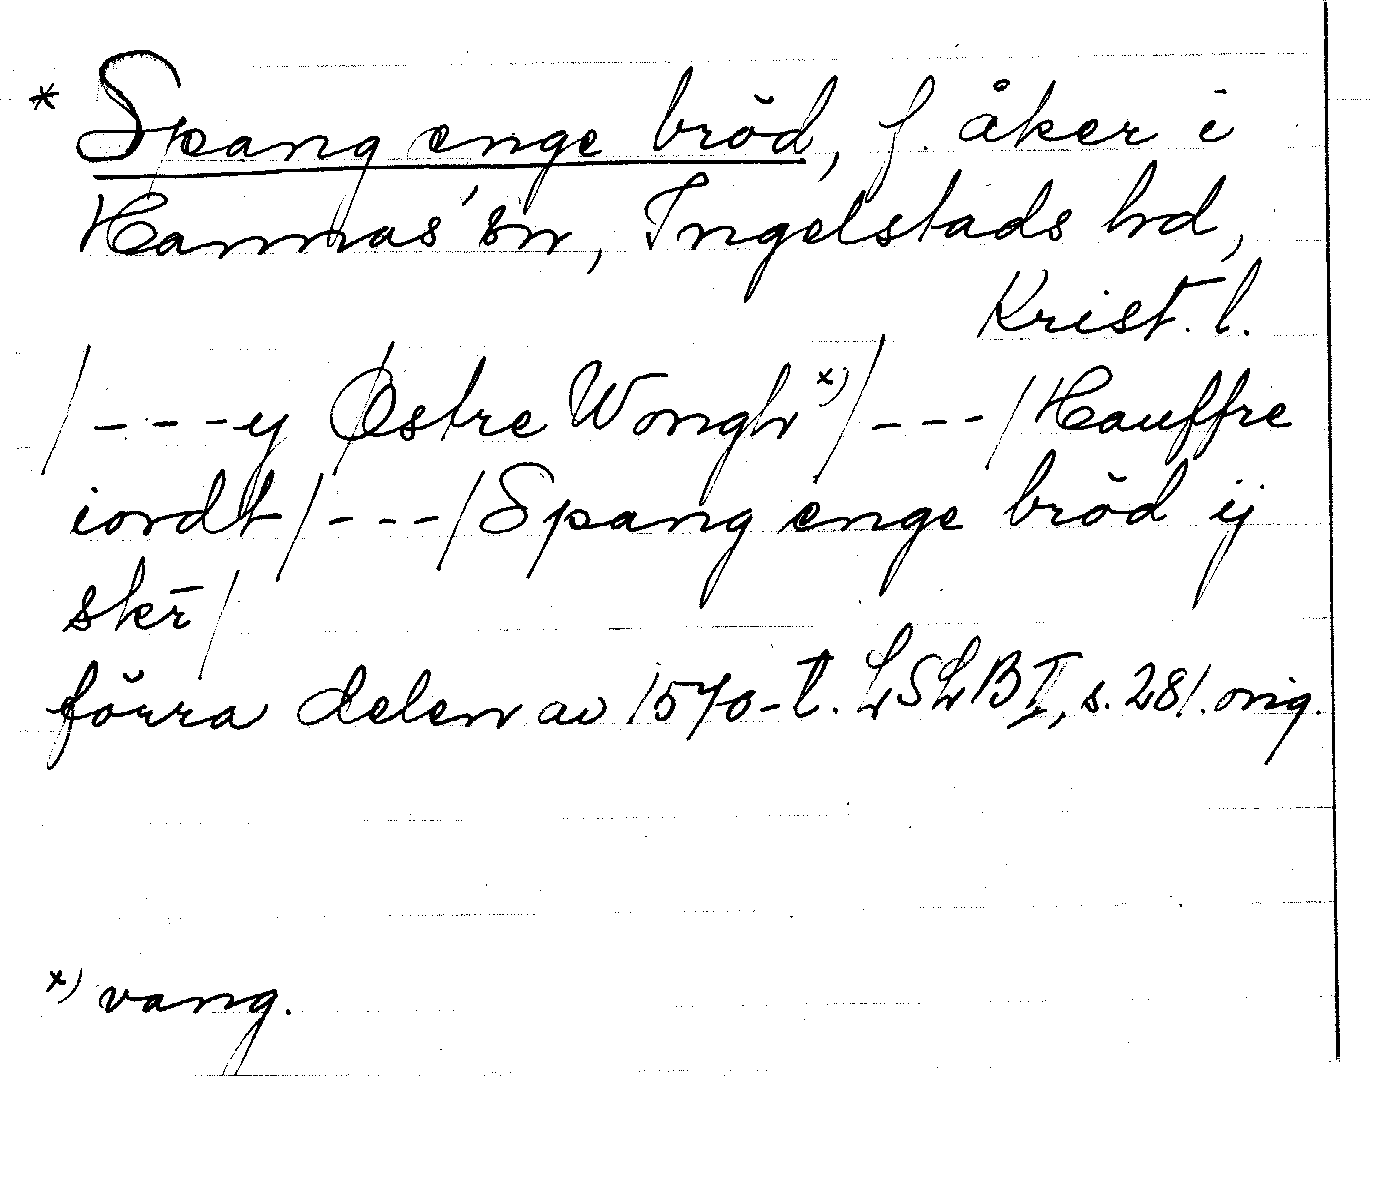 * Spang enge bröd, f. åker i
Hannas sn, Ingelstads hd,
Krist. l.
/---y Østre Wongh x)/---/Hauffre
iordt/---/Spang enge bröd ij
skr̄/
förra delen av 1570-t. LSLB I, s. 281. orig.
x) vang.